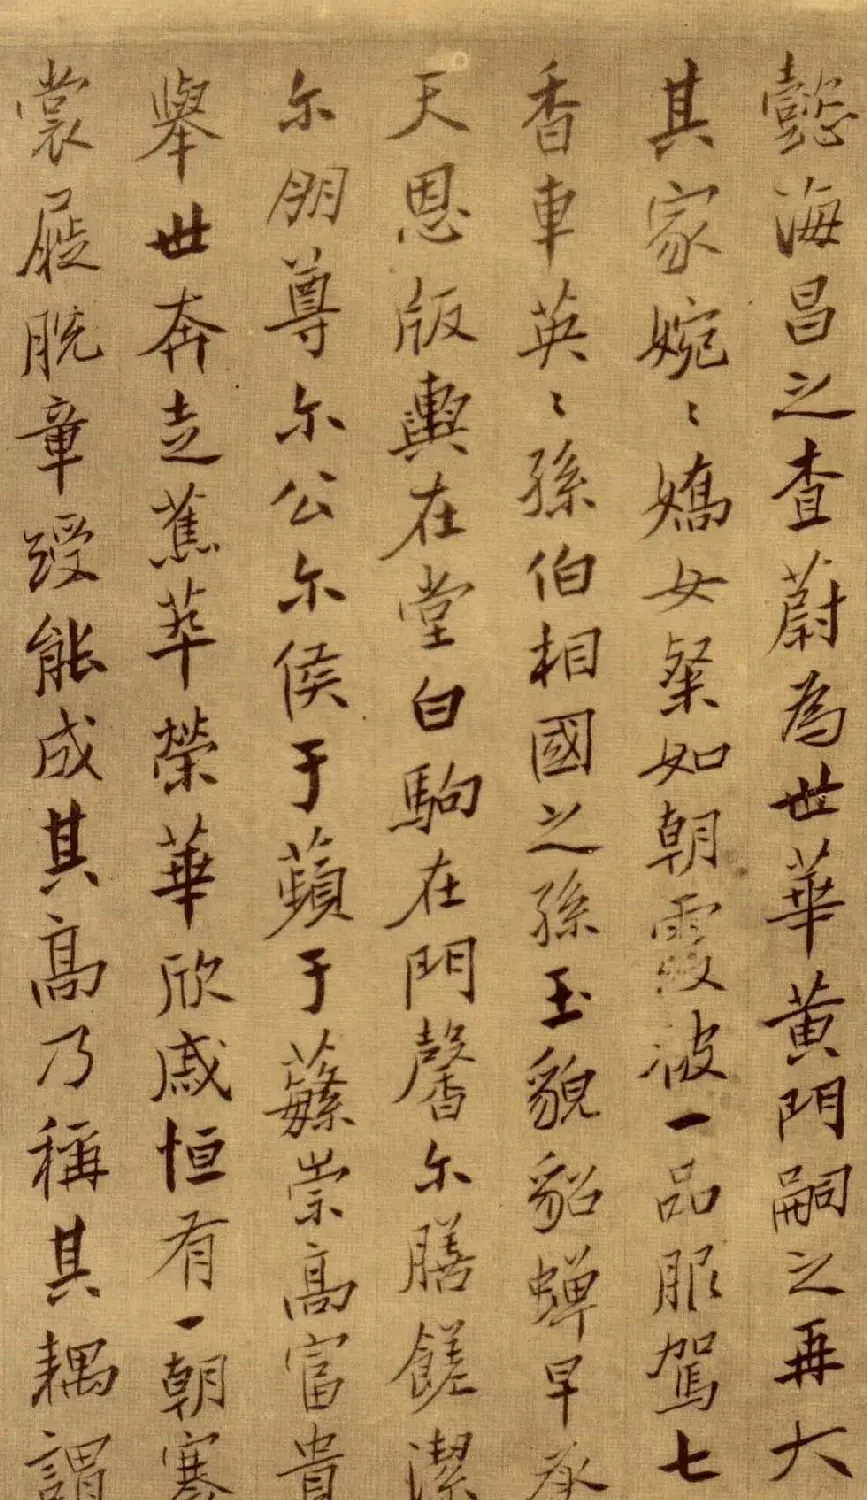 懿海昌之查蔚為世華黄門嗣之再大
其家婉〻嬌女粲如朝霞被一品服駕七
香車英〻孫伯相國之孫玉貌貂蟬早承
天恩版輿在堂白駒在門馨尔膳饈潔
尔朋尊尔公尔侯于蘋于蘩崇高富貴
舉世奔走蕉萃榮華欣戚恒有一朝寒
裳屣脱章綬能成其高乃稱其耦謂